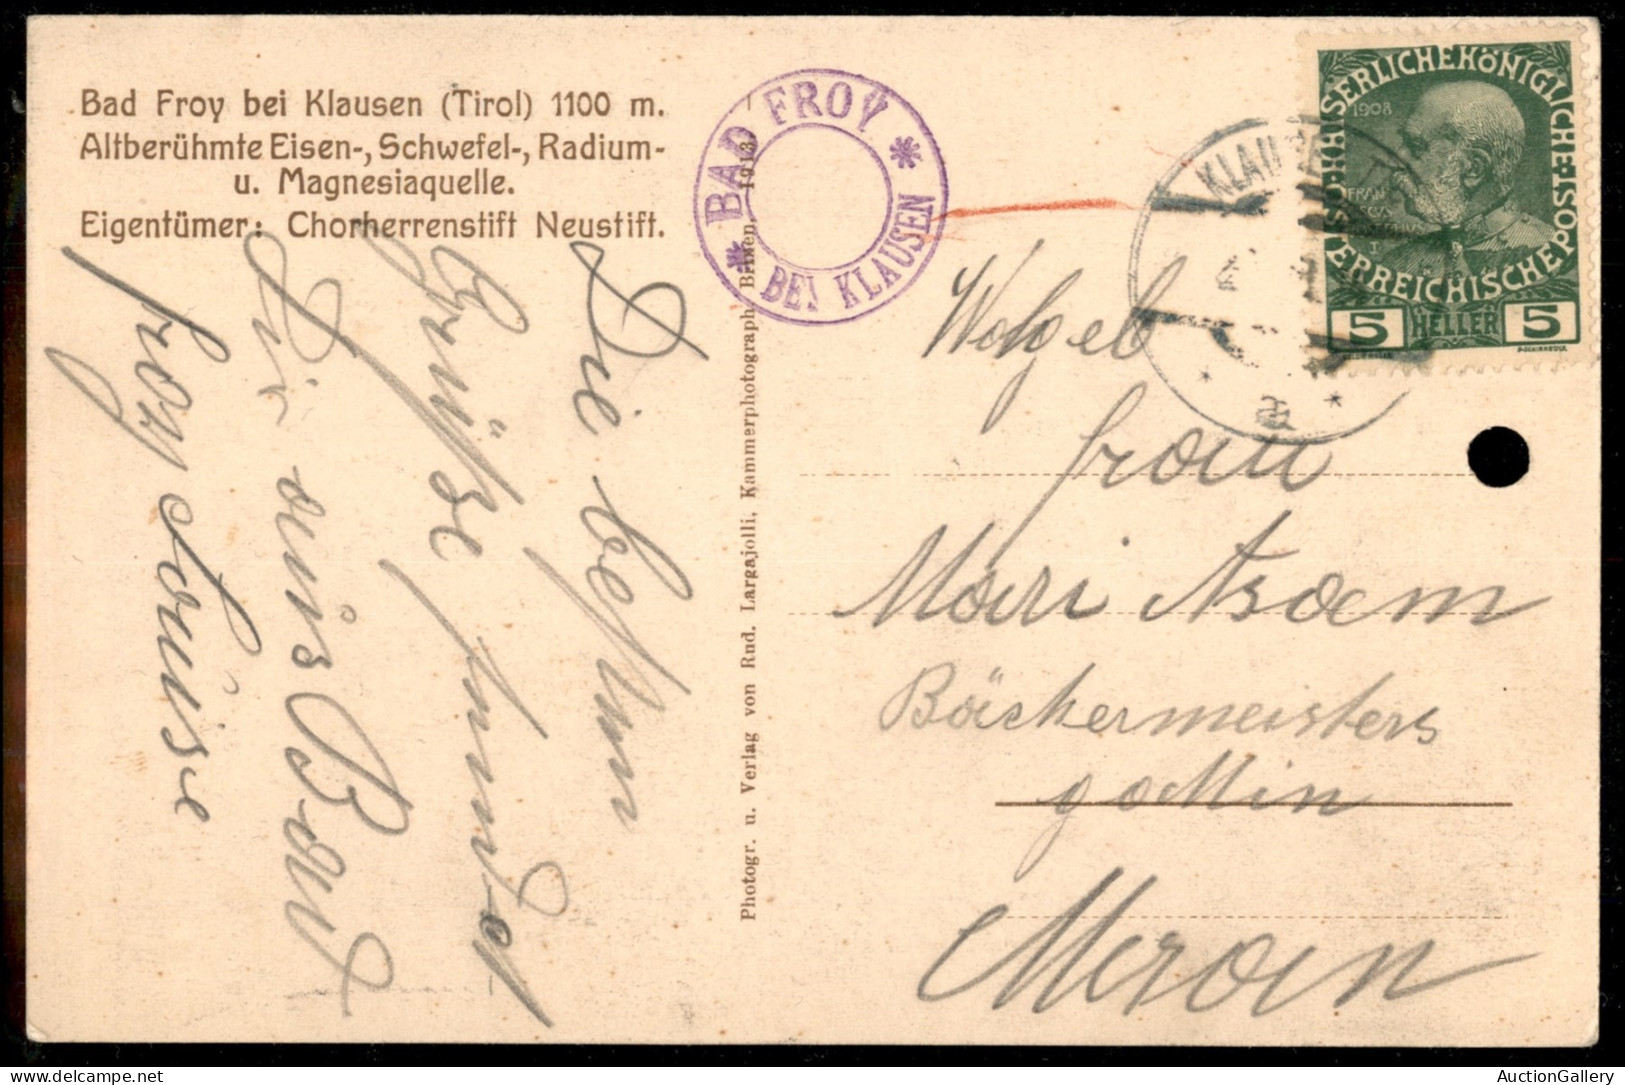 Bad Froy bei Klausen (Tirol) 1100 m.
Altberühmte Eisen-, Schwefel-, Radium-
u. Magnesiaquelle.
Eigentümer: Chorherrenstift Neustift.
Die besten
Grüße sendet
Dir aus Bad
froy Louise
Photogr. u. Verlag von Rud. Largajolli, Kammerphotograph, Brixen, 1913.
BAD FROY
BEI KLAUSEN
KLAUSEN
a
KAISERLICHEKÖNIGLICHE
ÖSTERREICHISCHEPOST
1908
5 HELLER 5
Wolgeb
frau
Mari
Bäckermeisters
gattin
Meran
AuctionGallery